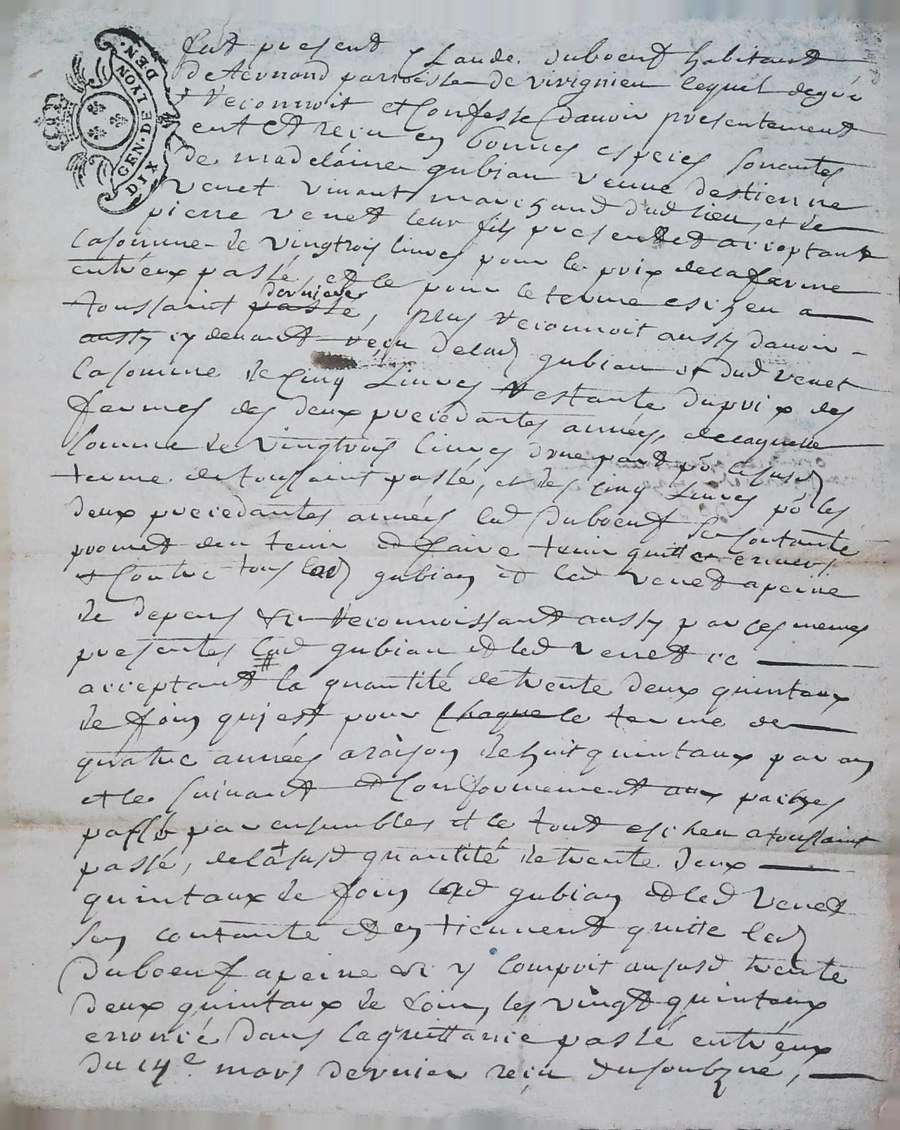 GEN. DE LYON. DEN.
DIX
fut present Claude duboeuf habitant
de ternand parroisse de vivignieu lequel degré
reconnoit et Confesse davoir presentement
eut et reçu en bonnes especes sonantes
de madelaine gubian veuve destienne
venet vivant marchand dud lieu, et de
pierre venet leur fils present et acceptant
la somme de vingtrois livres pour le prix de la ferme
entreux passé, et le pour le terme escheu a
toussaint passé, dernier plus reconnoit aussy davoir
aussy cy devant reçu de lad gubian et dud venet
la somme de cinq Livres restante du prix des
fermes des deux precedantes années, de laquelle
somme de vingtrois livres d'une part pr le susd
terme de toussaint passé, et des cinq Livres pr les
deux precedantes années led Duboeuf se contante
promet den tenir et faire tenir quitte envers
et Contre tous lad gubian et led venet a peine
de depens &c Reconnoissant aussy par ces memes
presentes lad gubian et led venet ce
acceptant la quantité de trente deux quintaux
de foin qui est pour chaque le terme de
quatre années a raison de huit quintaux par an
et le suivant et Conformement aux pactes
passé par ensembles et le tout escheu a toussaint
passé, de la susd quantité de trente deux
quintaux de foin lad gubian et led Venet
sen contante et en tiennent quitte led
Duboeuf a peine &c y compoit au susd trente
deux quintaux de foin, les vingt quintaux
enoncé dans la quittance passé entreux
du 14e mars dernier reçu du soubzne,